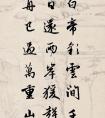 白帝彩雲間千
日還兩岸猿聲
舟已過萬重山